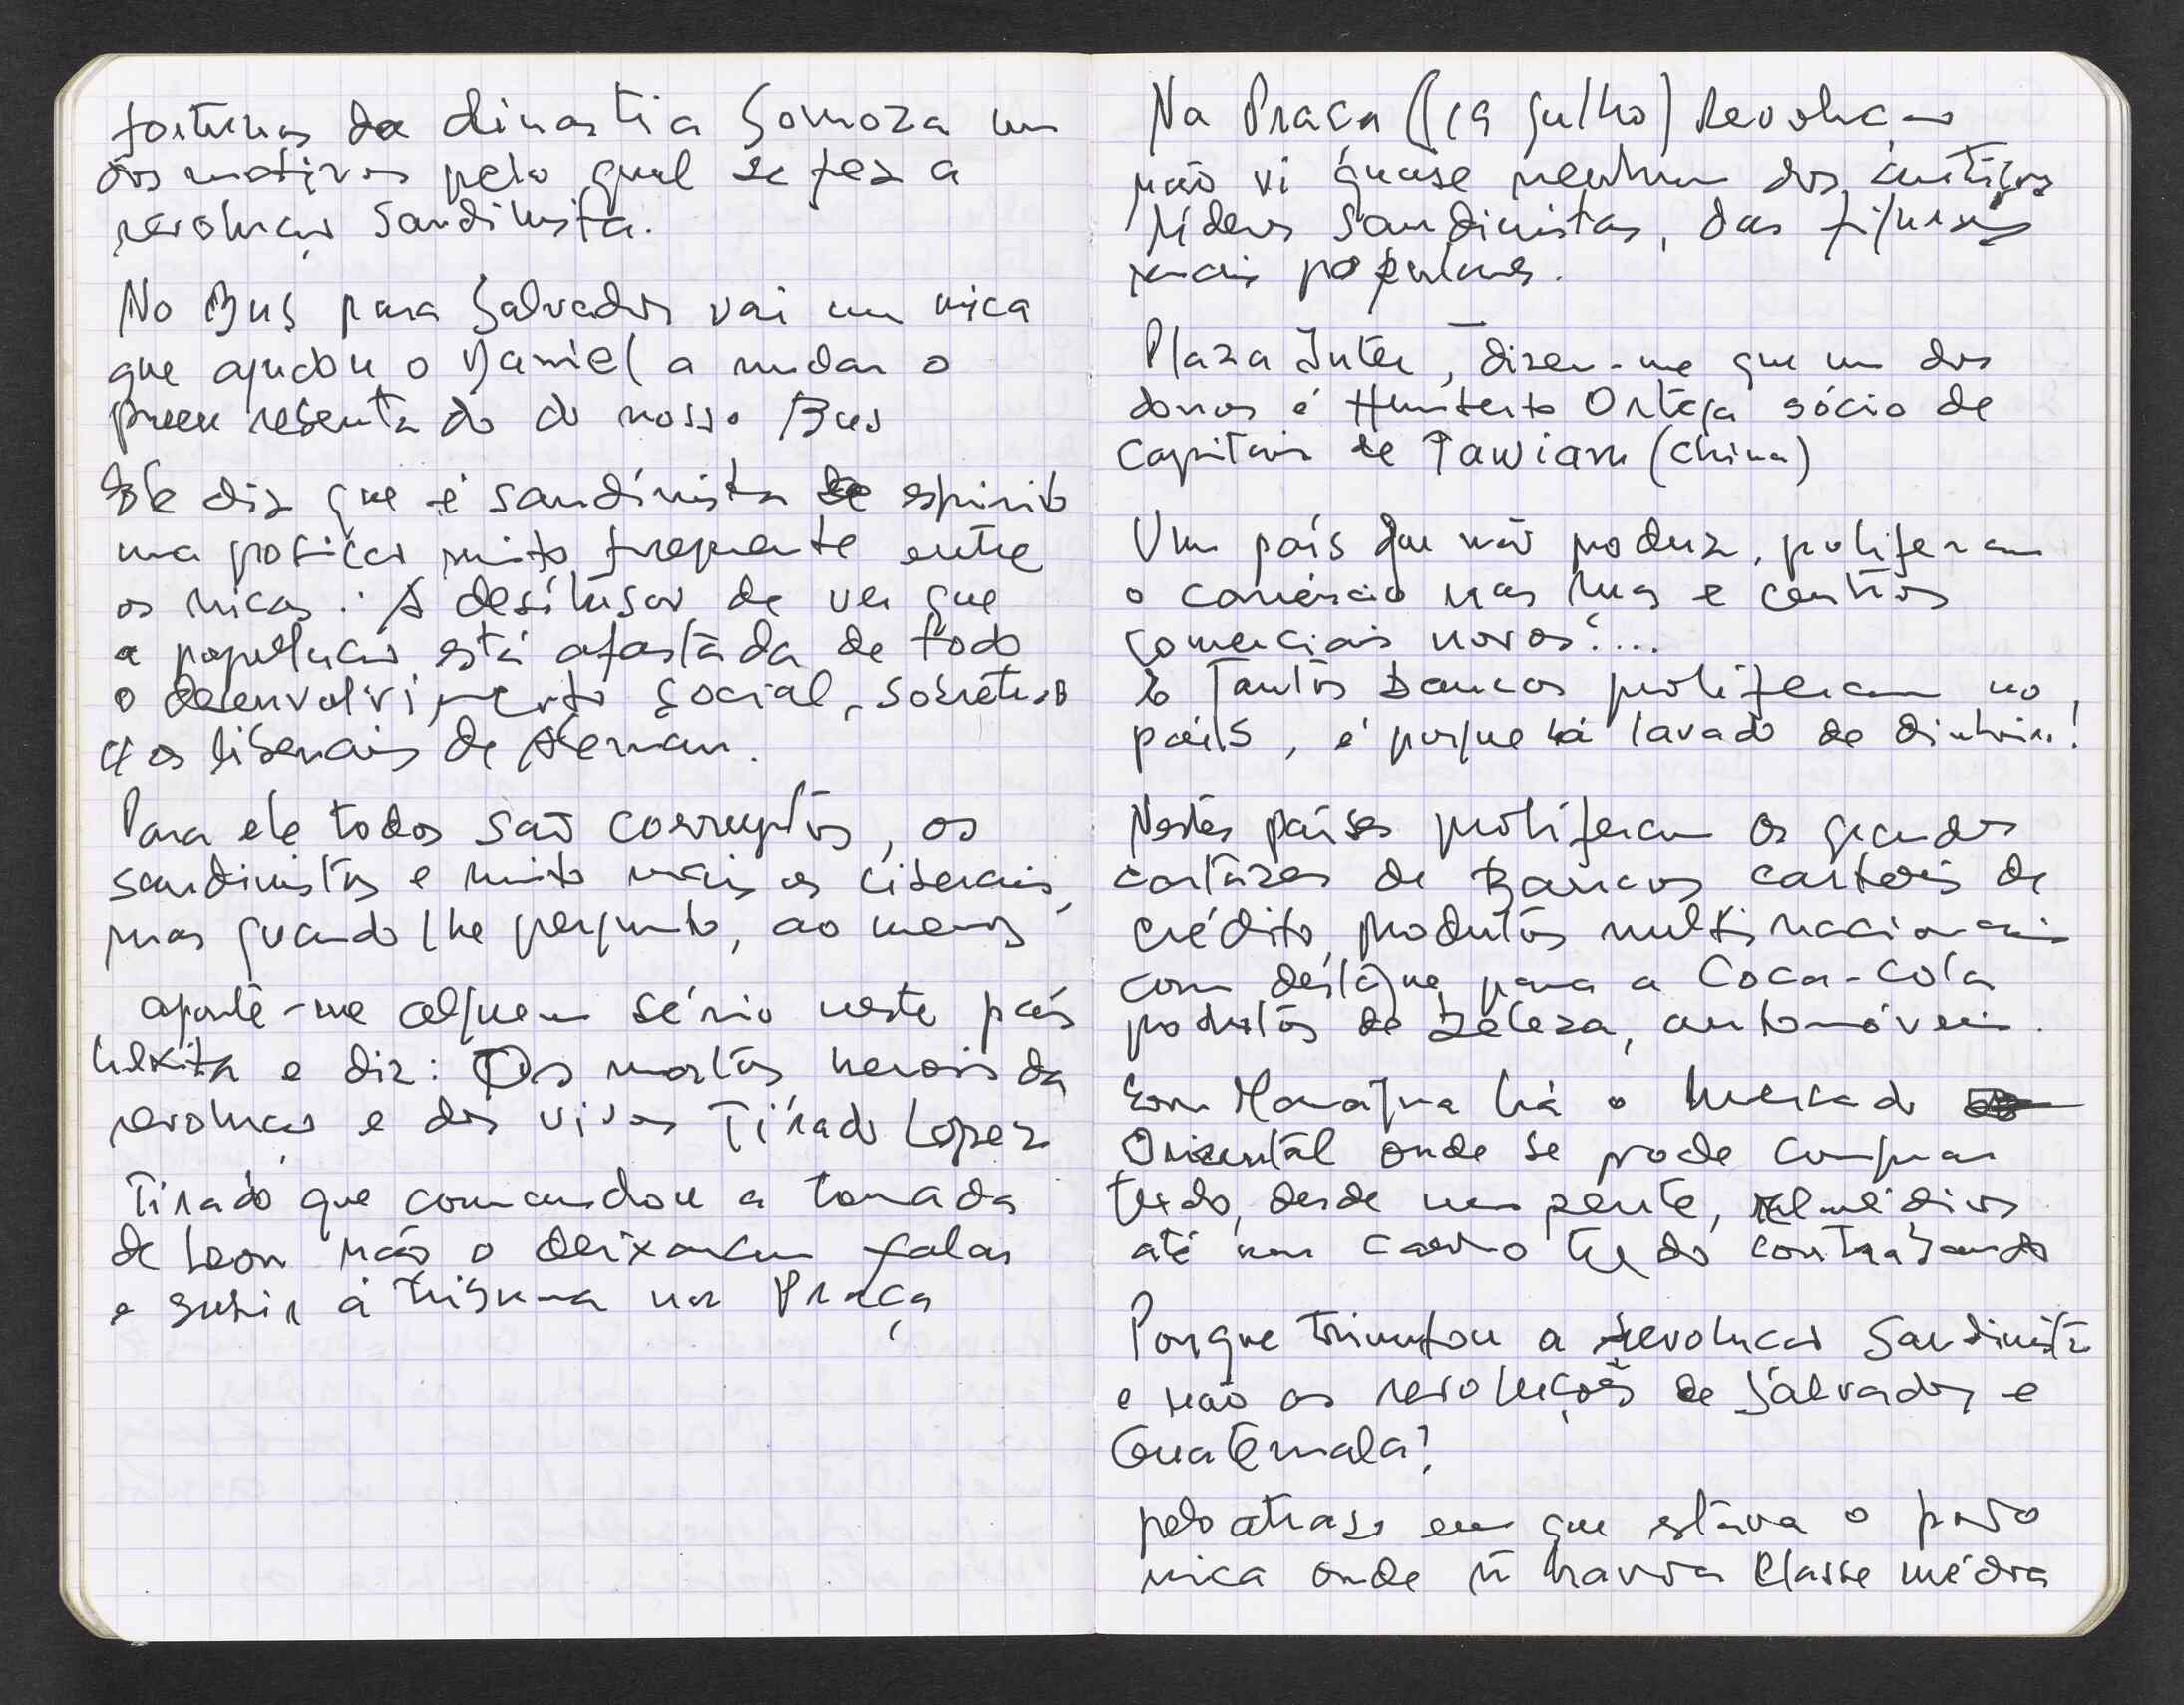 fortunas da dinastia Somoza um
dos motivos pelo qual se fez a
revolução Sandinista.
No Bus para Salvador vai um nica
que ajudou o Daniel a mudar o
pneu rebentado do nosso Bus
Ele diz que é sandinista de espirito
uma posição muito frequente entre
os nicas. A desilusão de ver que
a população está afastada de todo
o desenvolvimento social, sobretudo
os liberais de Aleman.
Para ele todos são corruptos, os
sandinistas e muito mais os liberais,
mas quando lhe pergunto, ao menos
aponte-me alguem sério neste país
hexita e diz: Os mortos herois da
revolução e dos vivos Tirado Lopez
Tirado que comandou a tomada
de Leon não o deixaram falar
e subir á tribuna na Praça
Na Praça (19 Julho) Revolução
não vi quase nenhum dos antigos
lideres Sandinistas, das figuras
mais populares.
Plaza Inter, dizem-me que um dos
donos é Humberto Ortega sócio de
capitais de Tawian (China)
Um país que não produz, proliferam
o comércio nas ruas e centros
comerciais novos!...
Tantos Bancos proliferam no
país, é porque há lavado de dinheiro!
Nestes países proliferam os grandes
cartazes de Bancos cartões de
crédito, produtos multinacionais
com destaque para a Coca-Cola
produtos de beleza, automóveis.
Em Managua há o Mercado
Oriental onde se pode comprar
tudo, desde um pente, remédios
até um carro tudo contrabando
Porque triunfou a revolução Sandinista
e não as revoluções de Salvador e
Guatemala?
pelo atraso em que estava o povo
nica onde ñ havia classe média